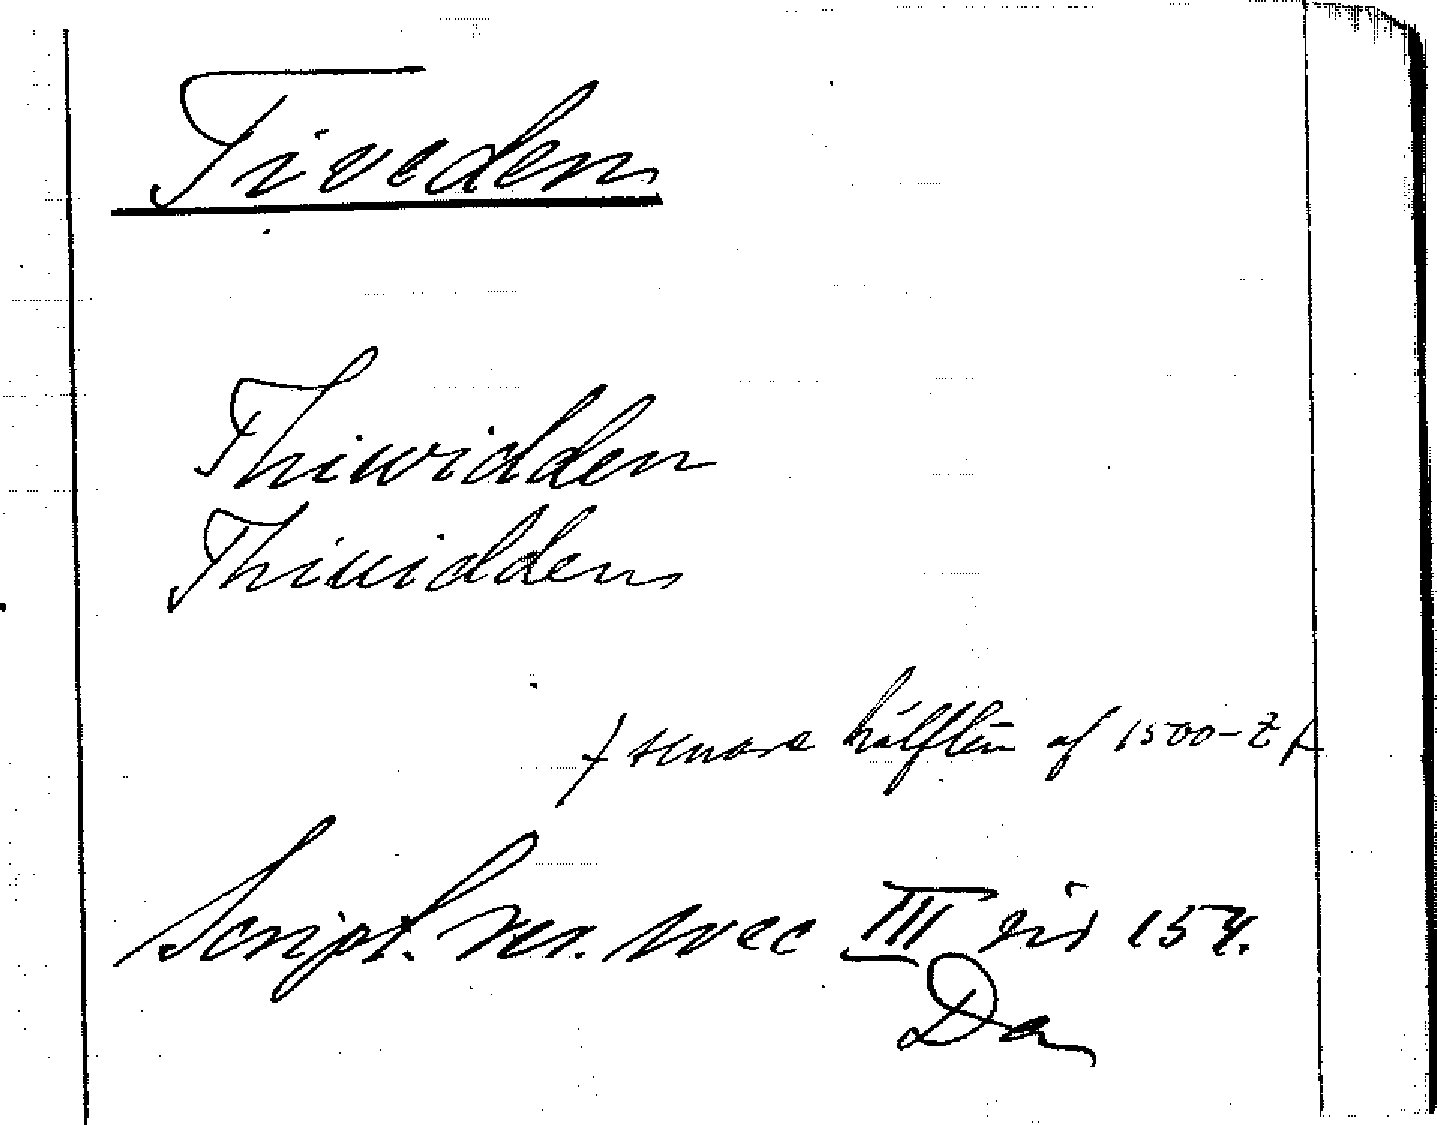 Tiveden
Thiwidden
Thiwidden
senare hälften af 1500-t
Script. rer. svec III sid 154.
Da